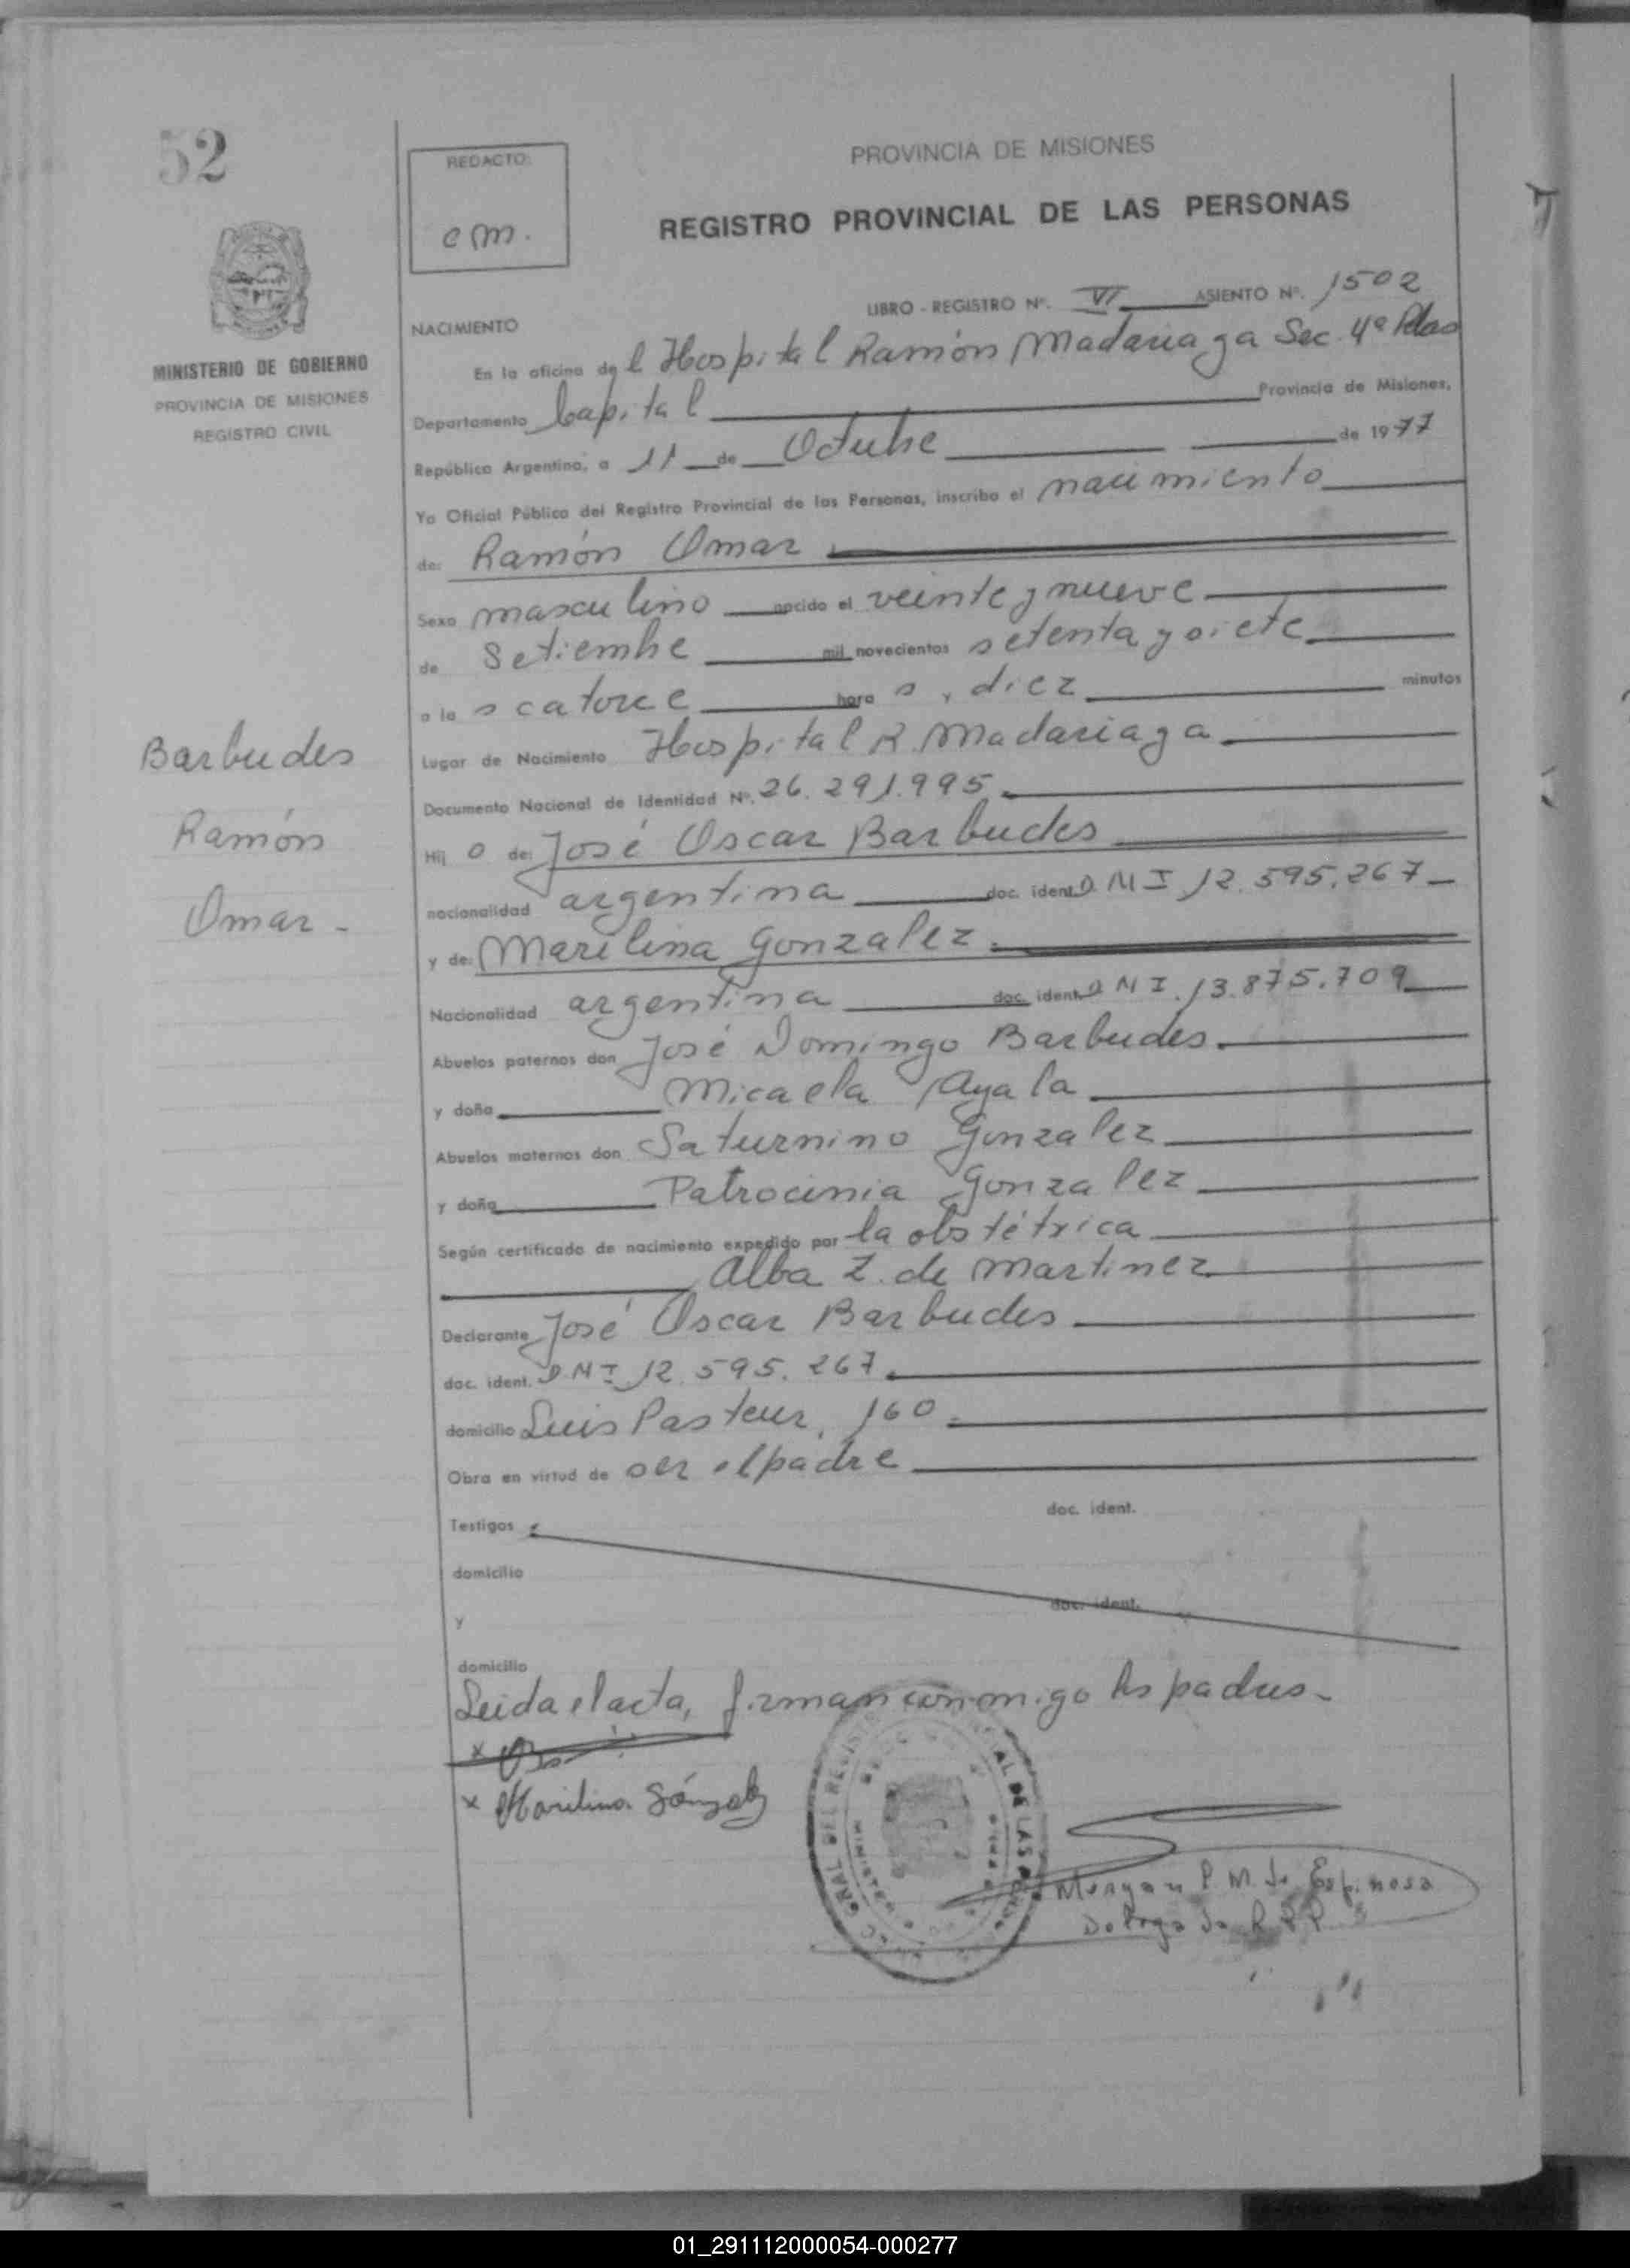 52
REDACTO:
cm.
PROVINCIA DE MISIONES
REGISTRO PROVINCIAL DE LAS PERSONAS
MINISTERIO DE GOBIERNO
PROVINCIA DE MISIONES
REGISTRO CIVIL
LIBRO - REGISTRO Nº. VI ASIENTO Nº. 1502
NACIMIENTO
En la oficina del Hospital Ramón Madariaga Sec. 4ª Pdas
Departamento Capital Provincia de Misiones,
República Argentina, a 11 de Octubre de 1977
Yo Oficial Público del Registro Provincial de las Personas, inscribo el nacimiento
de: Ramón Omar
Sexo masculino nacido el veinte y nueve
de Setiembre mil novecientos setenta y siete
a las catorce horas, diez minutos
Lugar de Nacimiento Hospital R. Madariaga
Documento Nacional de Identidad Nº. 26.291.995
Barbudes
Ramón
Omar -
Hijo de: José Oscar Barbudes
nacionalidad argentina doc. ident. D N I 12.595.267
y de: Marilina Gonzalez
Nacionalidad argentina doc. ident. D N I. 13.875.709
Abuelos paternos don José Domingo Barbudes.
y doña Micaela Ayala
Abuelos maternos don Saturnino Gonzalez
y doña Patrocinia Gonzalez
Según certificado de nacimiento expedido por la obstétrica
Alba Z. de Martinez
Declarante José Oscar Barbudes
doc. ident. D.N I 12.595.267
domicilio Luis Pasteur, 160
Obra en virtud de ser el padre
Testigos doc. ident.
domicilio
y doc. ident.
domicilio
Leida el acta, firman conmigo los padres -
x
x Marilina Gónzalez
P. M. de Espinosa
R.P.P.
01_291112000054-000277